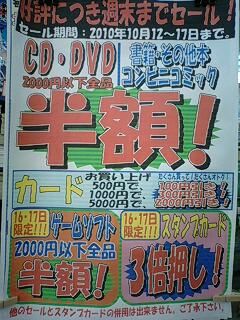 好評につき週末までセール!
セール期間:2010年10月12〜17日まで。
CD・DVD
2000円以下全品
書籍・その他本
コンビニコミック
半額!
カード
お買い上げ
500円で、
1000円で、
5000円で、
たくさん買って!たくさんオトク!
100円引き!
300円引き!
2000円引き!
16・17日
限定!!!
ゲームソフト
2000円以下全品
半額!
16・17日
限定!!!
スタンプカード
3倍押し!
他のセールとスタンプカードの併用は出来ません。ご了承下さい。